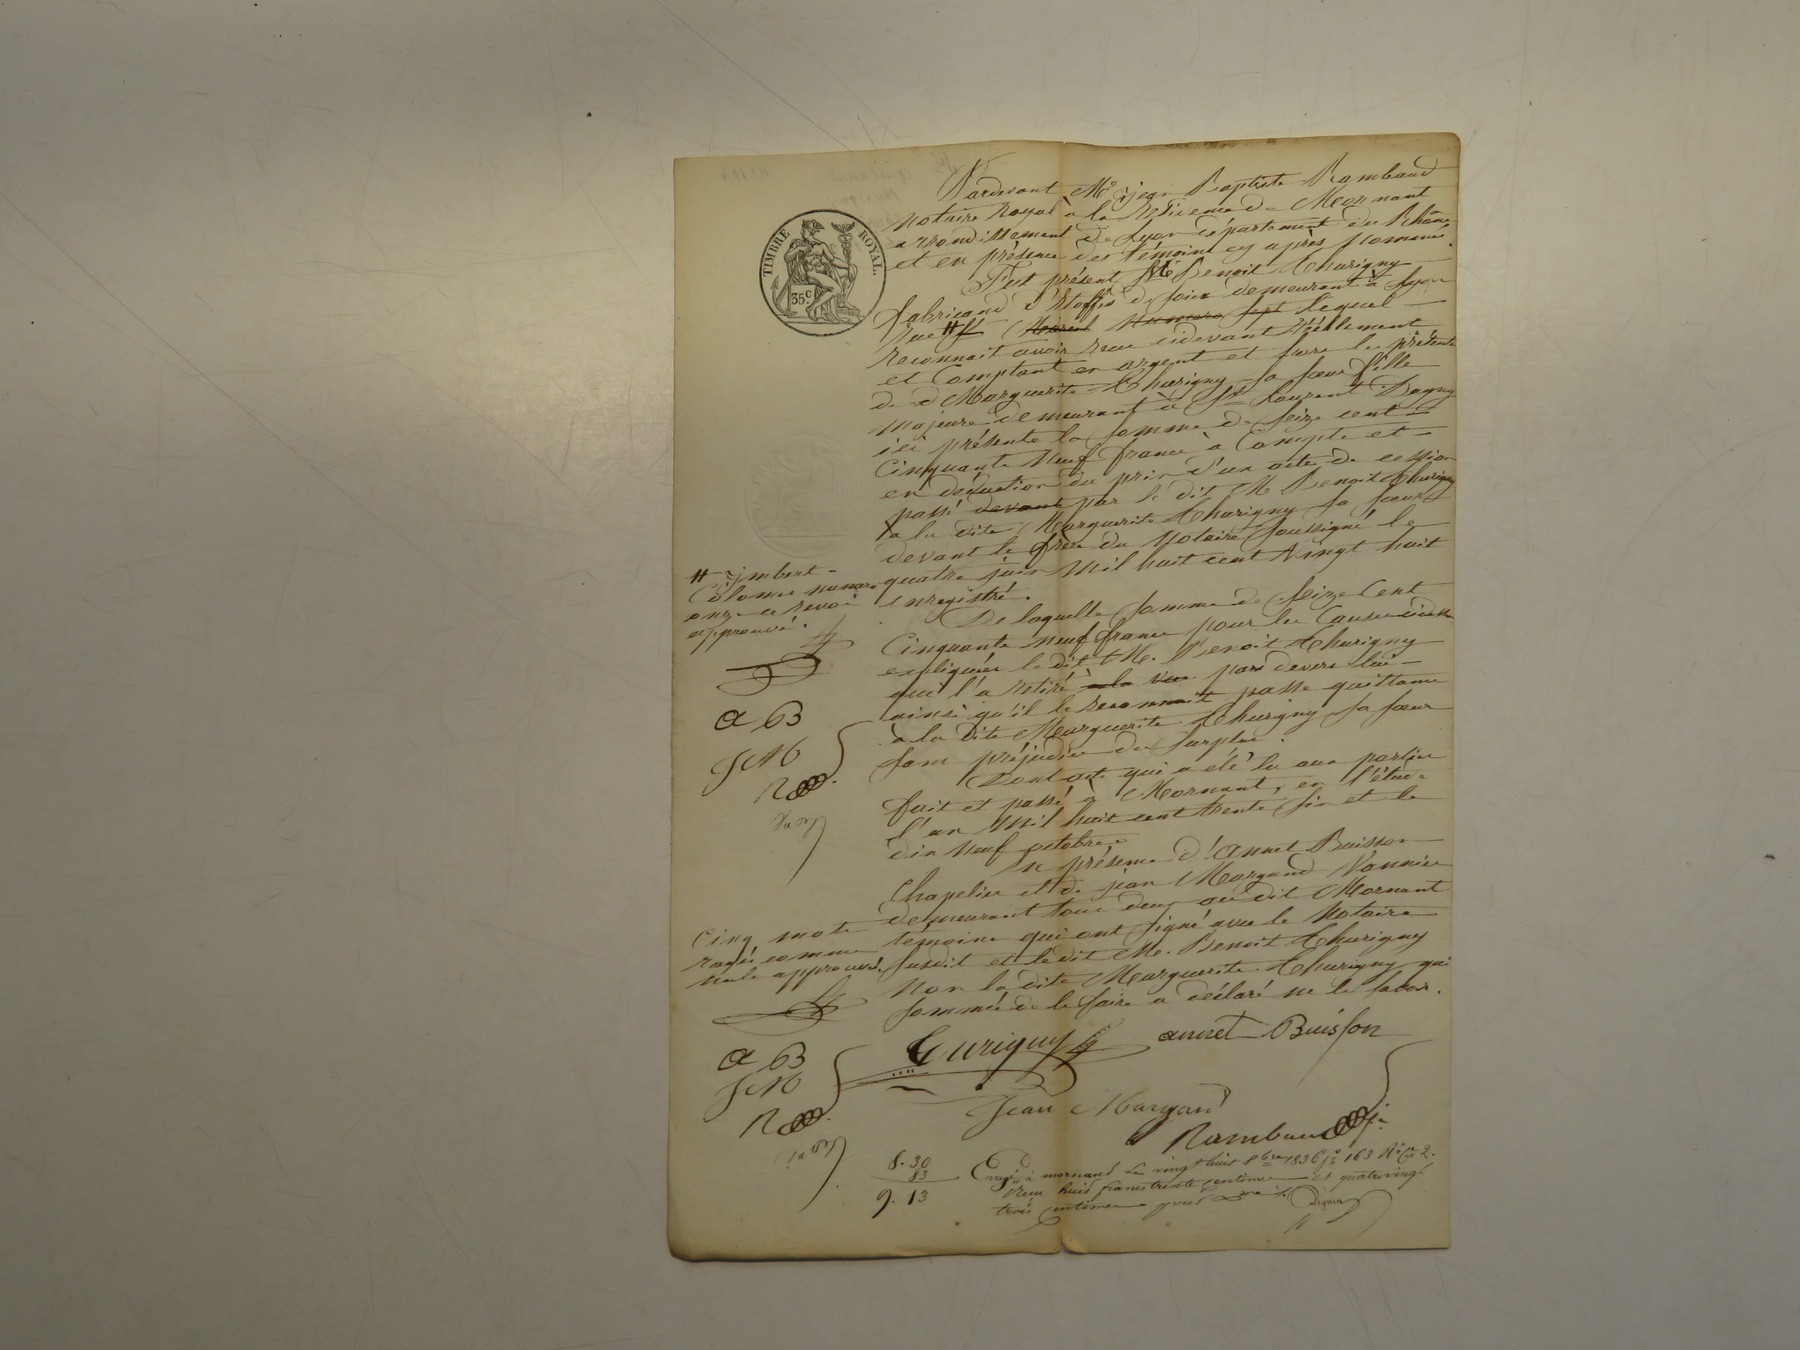 TIMBRE ROYAL.
35c
Pardevant Me jean Baptiste Rambaud
Notaire Royal à la Résidence de Mornant
arrondissement de Lyon département du Rhône
et en présence des témoins cy après nommés.
Fut présent Me Benoit Thurigny
fabricand d'Etoffes de soies demeurant à Lyon
Rue # numero sept lequel
reconnait avoir reçu cidevant réellement
et Comptant en argent et hors les présentes
de Marguerite Thurigny sa sœur fille
majeure demeurant à St Laurent Dagny
ici présente la somme de seize cent
Cinquante neuf francs à Compte et
en déduction du prix d'un acte de cession
passé devant par le dit M. Benoit Thurigny
à la dite Marguerite Thurigny sa sœur
devant le frère du Notaire soussigné le
quatre juin Mil huit cent vingt huit
enregistré.
# jmbert
Colomes numero
onze ce renvoi
approuvé.
De laquelle somme de seize Cent
Cinquante neuf francs pour les Causes
expliquées le dit M. Benoit Thurigny
qui l'a retiré à la vue pars devers lui
ainsi qu'il le reconnait passe quittance
à la dite Marguerite Thurigny sa sœur
sans préjudice du surplus.
Dont acte qui a été lu aux parties
fait et passé à Mornant, en l'étude
l'an Mil huit cent trente six et le
dix neuf octobre
a B
JM
R
En présence d'annet Buisson
Chapelier et de jean Margand Vannier
demeurant tous deux au dit Mornant
témoins qui ont signé avec le Notaire
susdit et le dit Me. Benoit Thurigny
Non la dite Marguerite Thurigny qui
sommée de le faire a déclaré ne le savoir.
Cinq mots
rayés comme
nuls approuvés.
a B
JM
R
Turigny
annet Buisson
Jean Margand
Rambaud
8.30
83
9.13
Enregé à mornant le vingt huit 8bre 1836 fo 163 Ro Ce 2.
Reçu huit francs trente centimes et quatrevingt
trois centimes pour